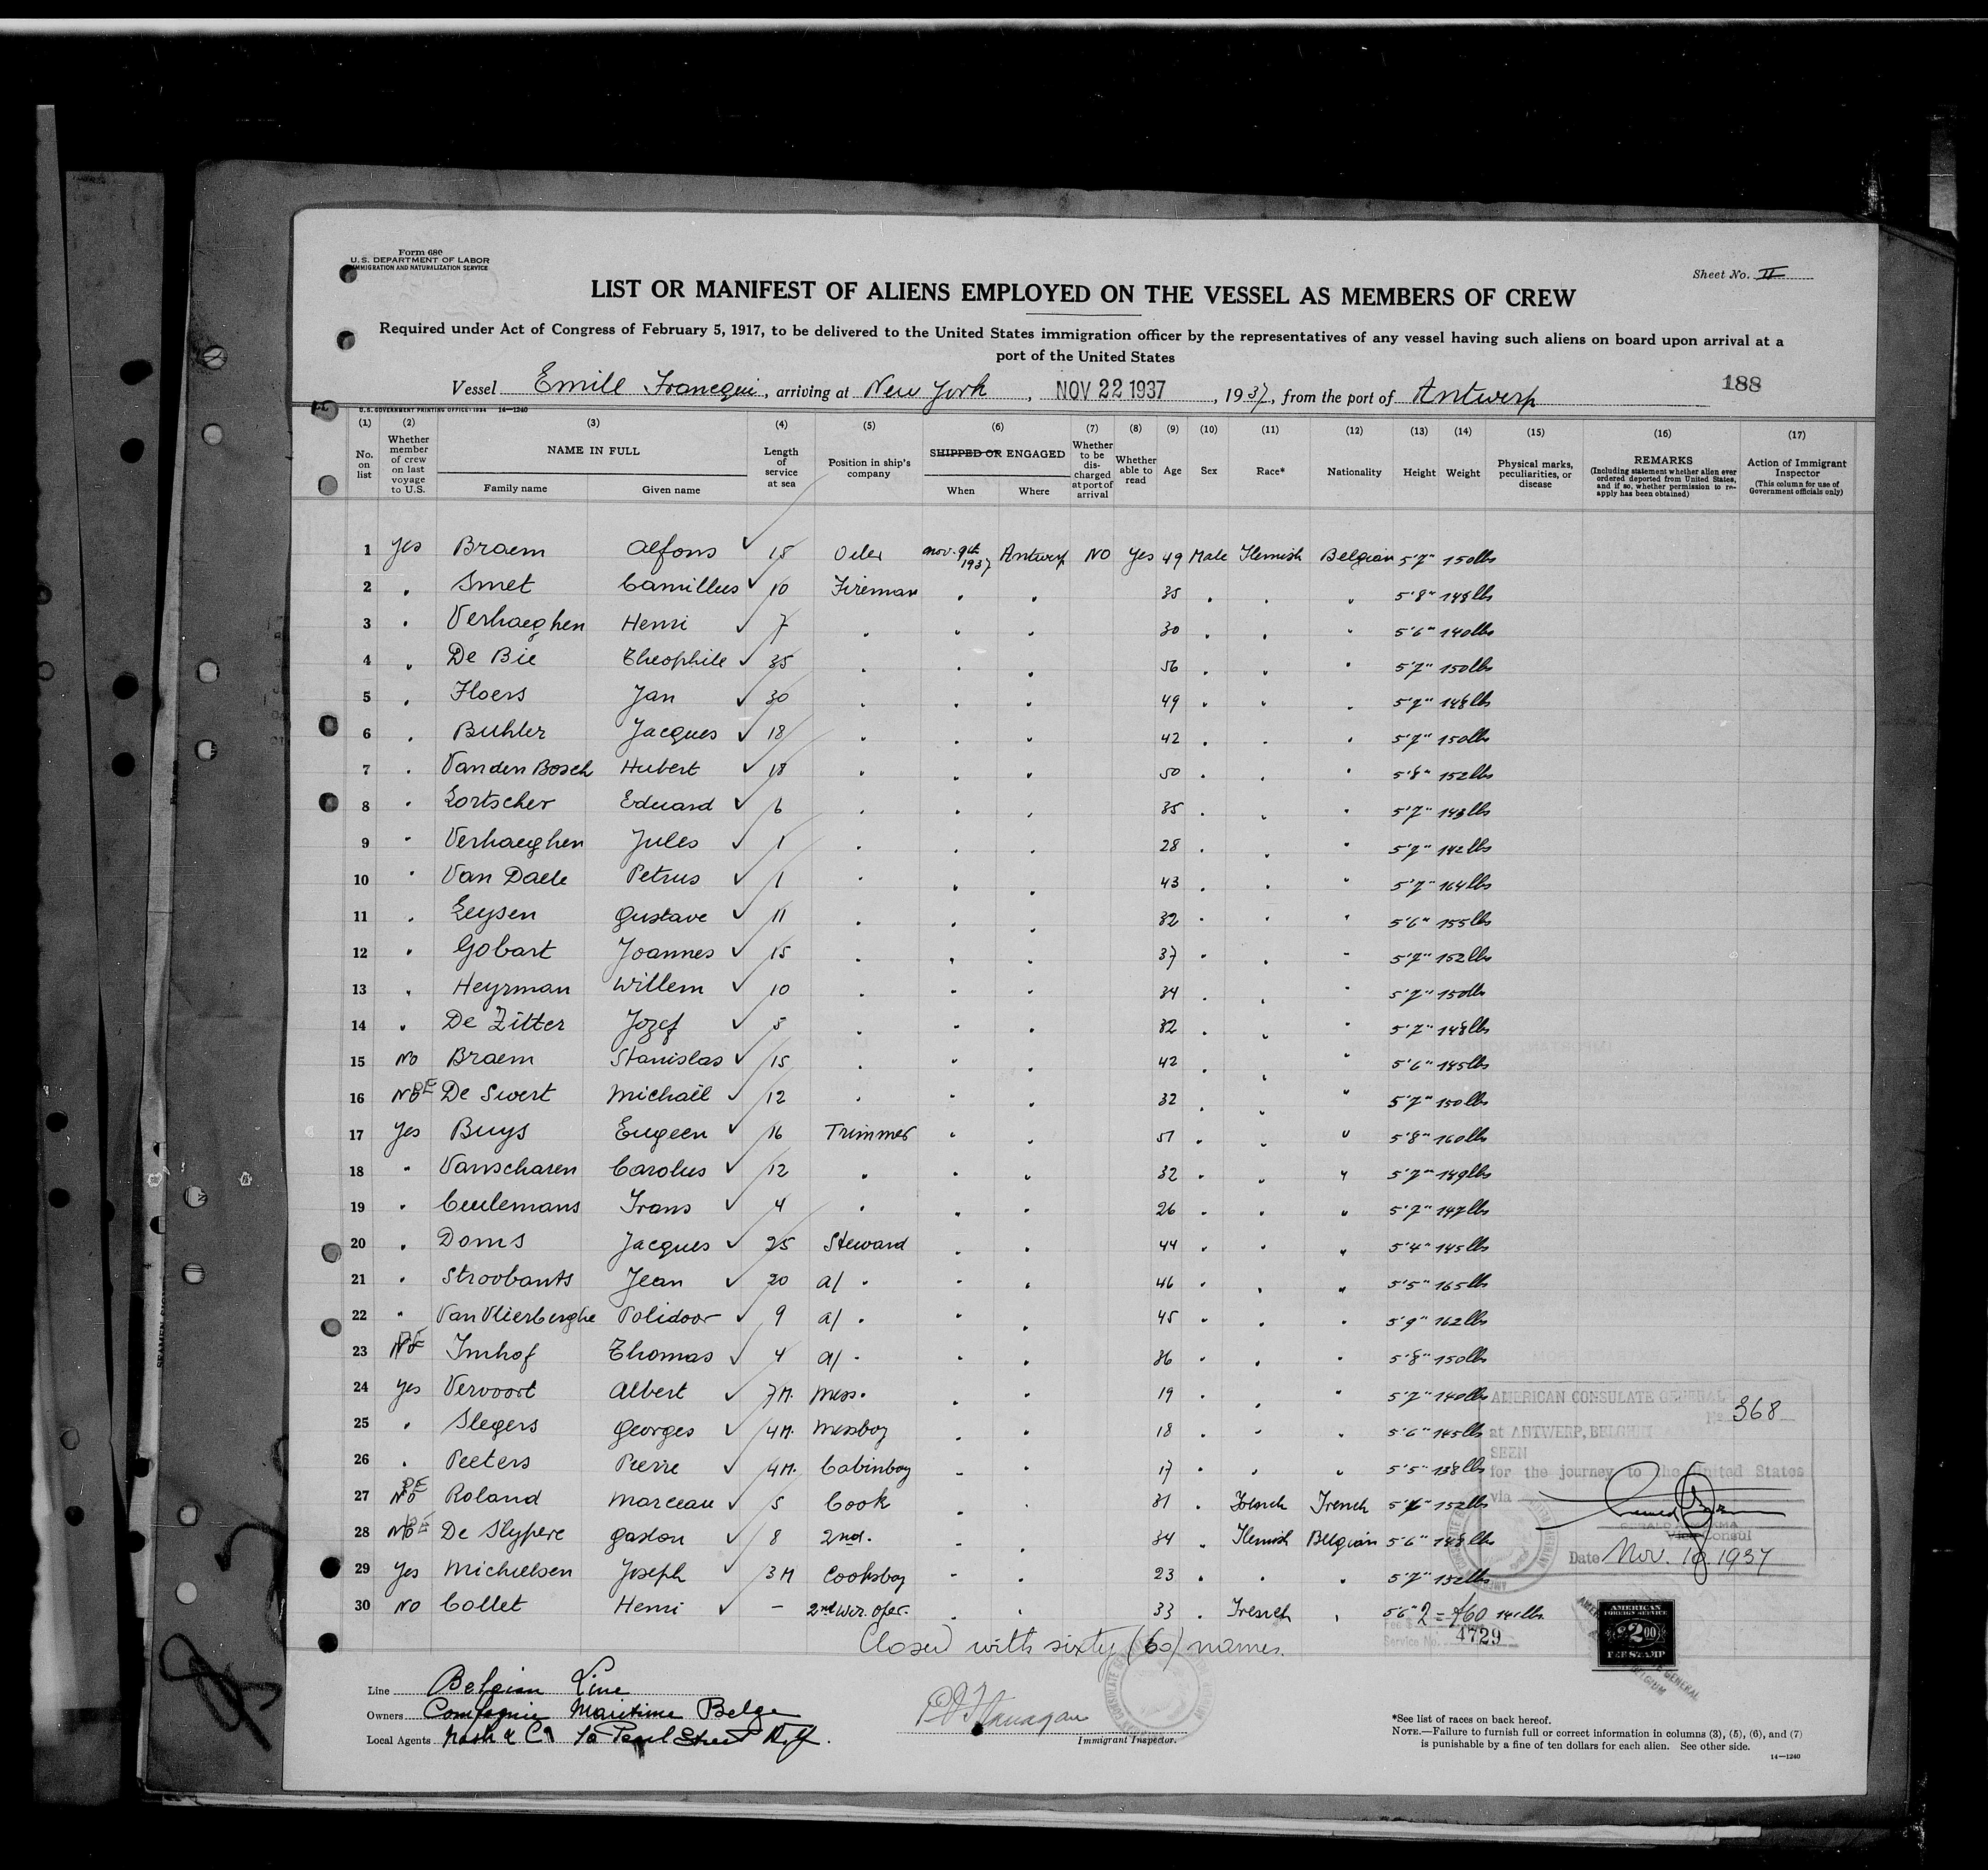 Form 680
U.S. DEPARTMENT OF LABOR
IMMIGRATION AND NATURALIZATION SERVICE
Sheet No. II
LIST OR MANIFEST OF ALIENS EMPLOYED ON THE VESSEL AS MEMBERS OF CREW
Required under Act of Congress of February 5, 1917, to be delivered to the United States immigration officer by the representatives of any vessel having such aliens on board upon arrival at a
port of the United States
Vessel Emile Francqui, arriving at New York, NOV 22 1937, 1937, from the port of Antwerp 188
U.S. GOVERNMENT PRINTING OFFICE: 1934 14—1240
(1) (2) (3) (4) (5) (6) (7) (8) (9) (10) (11) (12) (13) (14) (15) (16) (17)
No. on list Whether member of crew on last voyage to U.S. NAME IN FULL Family name Given name Length of service at sea Position in ship's company SHIPPED OR ENGAGED When Where Whether to be discharged at port of arrival Whether able to read Age Sex Race* Nationality Height Weight Physical marks, peculiarities, or disease REMARKS (Including statement whether alien ever ordered deported from United States, and if so, whether permission to reapply has been obtained) Action of Immigrant Inspector (This column for use of Government officials only)
1 Yes Braem Alfons 15 Oiler Nov. 9th 1937 Antwerp NO Yes 49 Male Flemish Belgian 5'7" 150lbs
2 " Smet Camillus 10 Fireman " " 35 " " " 5'8" 148lbs
3 " Verhaeghen Henri 7 " " " 30 " " " 5'6" 140lbs
4 " De Bie Theophile 35 " " " 56 " " " 5'7" 150lbs
5 " Floers Jan 30 " " " 49 " " " 5'7" 148lbs
6 " Buhler Jacques 18 " " " 42 " " " 5'7" 150lbs
7 " Vanden Bosch Hubert 18 " " " 50 " " " 5'8" 152lbs
8 " Lortscher Eduard 6 " " " 35 " " " 5'7" 143lbs
9 " Verhaeghen Jules 1 " " " 28 " " " 5'7" 142lbs
10 " Van Daele Petrus 1 " " " 43 " " " 5'7" 164lbs
11 " Leysen Gustave 11 " " " 32 " " " 5'6" 155lbs
12 " Gobart Joannes 15 " " " 37 " " " 5'7" 152lbs
13 " Heyrman Willem 10 " " " 34 " " " 5'7" 150lbs
14 " De Zitter Jozef 5 " " " 32 " " " 5'7" 148lbs
15 No Braem Stanislas 15 " " " 42 " " " 5'6" 145lbs
16 No De Swert Michaël 12 " " " 32 " " " 5'7" 150lbs
17 Yes Buys Eugeen 16 Trimmer " " 51 " " " 5'8" 160lbs
18 " Vanscharen Carolus 12 " " " 32 " " " 5'7" 149lbs
19 " Ceulemans Frans 4 " " " 26 " " " 5'7" 147lbs
20 " Doms Jacques 25 Steward " " 44 " " " 5'4" 145lbs
21 " Stroobants Jean 20 a/ " " " 46 " " " 5'5" 165lbs
22 " Van Vlierberghe Polidoor 9 a/ " " " 45 " " " 5'9" 162lbs
23 No Imhof Thomas 4 a/ " " " 36 " " " 5'8" 150lbs
24 Yes Vervoort Albert 7M. Mess. " " 19 " " " 5'7" 140lbs
25 " Slegers Georges 4M. Messboy " " 18 " " " 5'6" 145lbs
26 " Peeters Pierre 4M. Cabinboy " " 17 " " " 5'5" 138lbs
27 No Roland Marceau 5 Cook " " 31 " French French 152lbs
28 No De Slypere Gaston 8 2nd. " " 34 " Flemish Belgian 5'6" 148lbs
29 Yes Michielsen Joseph 3M Cooksboy " " 23 " " " 5'7" 152lbs
30 No Collet Henri — 2nd Wir. Oper. " " 33 " French " 5'6" 141lbs
Closed with sixty (60) names.
AMERICAN CONSULATE GENERAL
No. 368
at ANTWERP, BELGIUM
SEEN
for the journey to the United States
via
Vice Consul
Date Nov. 10. 1937
Fee $ 2 =
Service No. 4729
AMERICAN FOREIGN SERVICE
$2.00
FEE STAMP
Line Belgian Line
Owners Compagnie Maritime Belge
Local Agents Nash & Co 10 Pearl Street N.Y.
Immigrant Inspector.
*See list of races on back hereof.
NOTE.—Failure to furnish full or correct information in columns (3), (5), (6), and (7)
is punishable by a fine of ten dollars for each alien. See other side.
14—1240